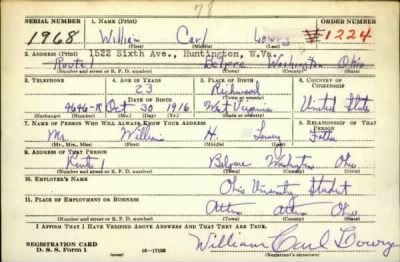 78
SERIAL NUMBER 1. NAME (Print) ORDER NUMBER
1968 William Carl Lowry 1224
(First) (Middle) (Last)
2. ADDRESS (Print) 1522 Sixth Ave., Huntington, W.Va.
Route 1 Belpre Washington Ohio
(Number and street or R. F. D. number) (Town) (County) (State)
3. TELEPHONE 4. AGE IN YEARS 5. PLACE OF BIRTH 6. COUNTRY OF CITIZENSHIP
23 Richwood
DATE OF BIRTH (Town or county)
9696-R Oct 30 1916 West Virginia United States
(Exchange) (Number) (Mo.) (Day) (Yr.) (State or country)
7. NAME OF PERSON WHO WILL ALWAYS KNOW YOUR ADDRESS 8. RELATIONSHIP OF THAT PERSON
Mr. William H Lowry Father
(Mr., Mrs., Miss) (First) (Middle) (Last)
9. ADDRESS OF THAT PERSON
Route 1 Belpre Washington Ohio
(Number and street or R. F. D. number) (Town) (County) (State)
10. EMPLOYER'S NAME
Ohio University Student
11. PLACE OF EMPLOYMENT OR BUSINESS
Athens Athens Ohio
(Number and street or R. F. D. number) (Town) (County) (State)
I AFFIRM THAT I HAVE VERIFIED ABOVE ANSWERS AND THAT THEY ARE TRUE.
REGISTRATION CARD
D. S. S. Form 1 (over) 16—17105
William Carl Lowry
(Registrant's signature)